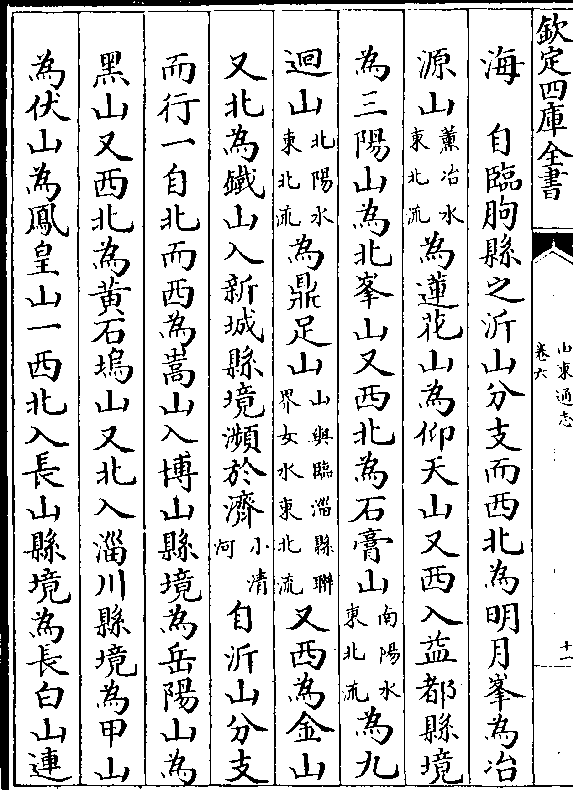 欽定四庫全書
山東通志
卷六
十一
海　自臨朐縣之沂山分支而西北為明月峯為冶
源山薰冶水東北流為蓮花山為仰天山又西入益都縣境
為三陽山為北峯山又西北為石膏山南陽水東北流為九
迴山北陽水東北流為鼎足山山與臨淄縣聯界女水東北流又西為金山
又北為鐵山入新城縣境瀕於濟小清河自沂山分支
而行一自北而西為嵩山入博山縣境為岳陽山為
黑山又西北為黃石塢山又北入淄川縣境為甲山
為伏山為鳳皇山一西北入長山縣境為長白山連